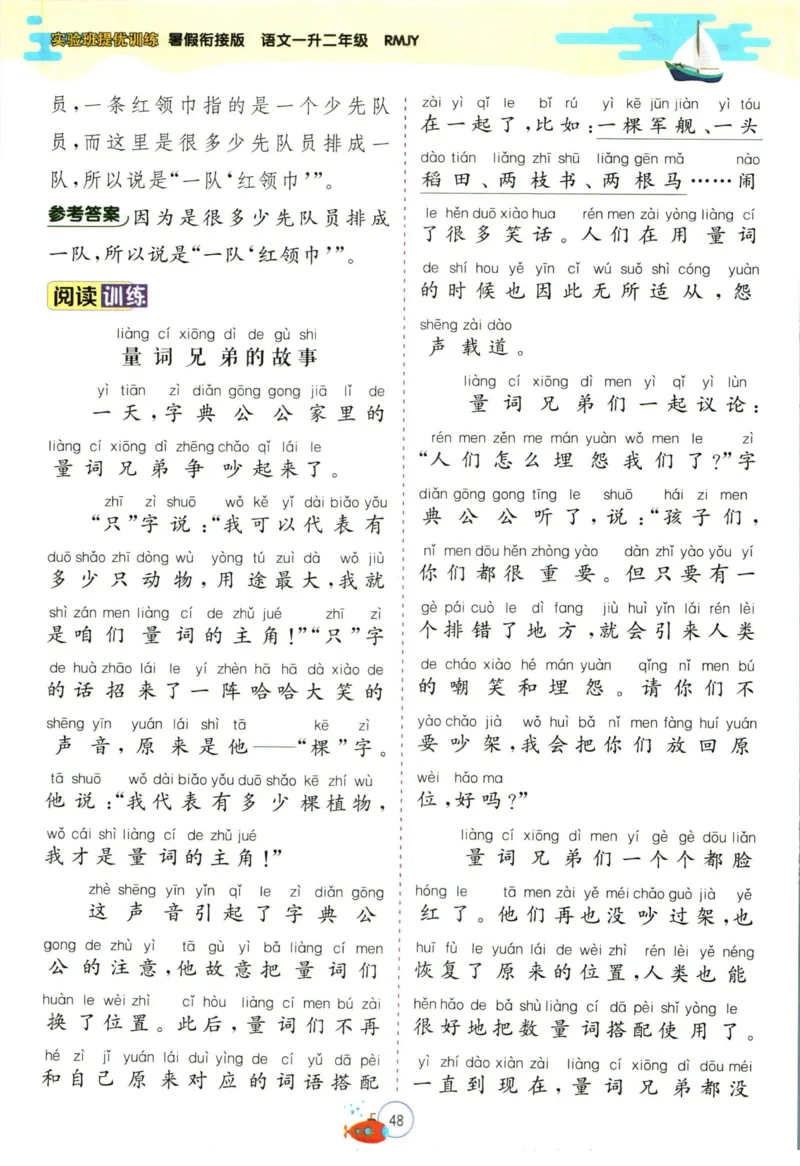 实验班提优训练 暑假衔接版 语文一升二年级 RMJY
员,一条红领巾指的是一个少先队
员,而这里是很多少先队员排成一
队,所以说是“一队‘红领巾’”。
参考答案 因为是很多少先队员排成
一队,所以说是“一队‘红领巾’”。
阅读训练
liàng cí xiōng dì de gù shi
量词兄弟的故事
yì tiān zì diǎn gōng gong jiā lǐ de
一天,字典公公家里的
liàng cí xiōng dì zhēng chǎo qǐ lái le
量词兄弟争吵起来了。
zhī zì shuō wǒ kě yǐ dài biǎo yǒu
“只”字说:“我可以代表有
duō shǎo zhī dòng wù yòng tú zuì dà wǒ jiù
多少只动物,用途最大,我就
shì zán men liàng cí de zhǔ jué zhī zì
是咱们量词的主角!”“只”字
de huà zhāo lái le yí zhèn hā hā dà xiào de
的话招来了一阵哈哈大笑的
shēng yīn yuán lái shì tā kē zì
声音,原来是他——“棵”字。
tā shuō wǒ dài biǎo yǒu duō shǎo kē zhí wù
他说:“我代表有多少棵植物,
wǒ cái shì liàng cí de zhǔ jué
我才是量词的主角!”
zhè shēng yīn yǐn qǐ le zì diǎn gōng
这声音引起了字典公
gong de zhù yì tā gù yì bǎ liàng cí men
公的注意,他故意把量词们
huàn le wèi zhì cǐ hòu liàng cí men bú zài
换了位置。此后,量词们不再
hé zì jǐ yuán lái duì yìng de cí yǔ dā pèi
和自己原来对应的词语搭配
zài yì qǐ le bǐ rú yì kē jūn jiàn yì tóu
在一起了,比如:一棵军舰、一头
dào tián liǎng zhī shū liǎng gēn mǎ nào
稻田、两枝书、两根马……闹
le hěn duō xiào hua rén men zài yòng liàng cí
了很多笑话。人们在用量词
de shí hou yě yīn cǐ wú suǒ shì cóng yuàn
的时候也因此无所适从,怨
shēng zài dào
声载道。
liàng cí xiōng dì men yì qǐ yì lùn
量词兄弟们一起议论:
rén men zěn me mán yuàn wǒ men le zì
“人们怎么埋怨我们了?”字
diǎn gōng gong tīng le shuō hái zi men
典公公听了,说:“孩子们,
nǐ men dōu hěn zhòng yào dàn zhǐ yào yǒu yí
你们都很重要。但只要有一
gè pái cuò le dì fang jiù huì yǐn lái rén lèi
个排错了地方,就会引来人类
de cháo xiào hé mán yuàn qǐng nǐ men bú
的嘲笑和埋怨。请你们不
yào chǎo jià wǒ huì bǎ nǐ men fàng huí yuán
要吵架,我会把你们放回原
wèi hǎo ma
位,好吗?”
liàng cí xiōng dì men yí gè gè dōu liǎn
量词兄弟们一个个都脸
hóng le tā men zài yě méi chǎo guò jià yě
红了。他们再也没吵过架,也
huī fù le yuán lái de wèi zhì rén lèi yě néng
恢复了原来的位置,人类也能
hěn hǎo de bǎ shù liàng cí dā pèi shǐ yòng le
很好地把数量词搭配使用了。
yì zhí dào xiàn zài liàng cí xiōng dì dōu méi
一直到现在,量词兄弟都没
48